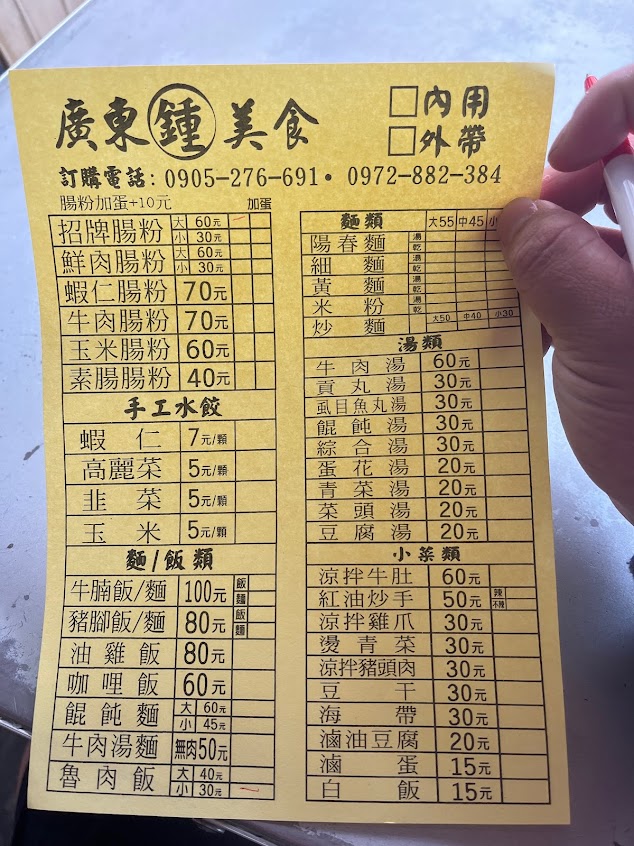 廣東鍾美食
□內用
□外帶
訂購電話：0905-276-691•0972-882-384
腸粉加蛋+10元 加蛋
招牌腸粉 大 60元
小 30元
鮮肉腸粉 大 60元
小 30元
蝦仁腸粉 70元
牛肉腸粉 70元
玉米腸粉 60元
素腸腸粉 40元
手工水餃
蝦仁 7元/顆
高麗菜 5元/顆
韭菜 5元/顆
玉米 5元/顆
麵/飯類
牛腩飯/麵 100元 飯 麵
豬腳飯/麵 80元 飯 麵
油雞飯 80元
咖哩飯 60元
餛飩麵 大 60元
小 45元
牛肉湯麵 無肉50元
魯肉飯 大 40元
小 30元
麵類 大55 中45 小
陽春麵 湯 乾
細麵 湯 乾
黃麵 湯 乾
米粉 湯 乾
炒麵 大50 中40 小30
湯類
牛肉湯 60元
貢丸湯 30元
虱目魚丸湯 30元
餛飩湯 30元
綜合湯 30元
蛋花湯 20元
青菜湯 20元
菜頭湯 20元
豆腐湯 20元
小菜類
涼拌牛肚 60元
紅油炒手 50元 辣 不辣
涼拌雞爪 30元
燙青菜 30元
涼拌豬頭肉 30元
豆干 30元
海帶 30元
滷油豆腐 20元
滷蛋 15元
白飯 15元